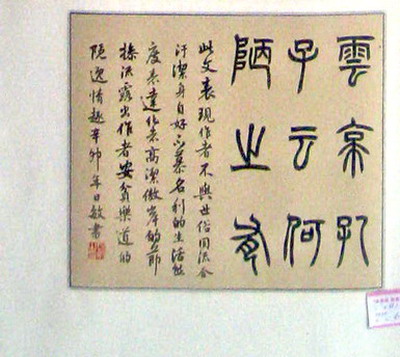 雲亭孔
子云何
陋之有
此文表现作者不與世俗同流合
汙潔身自好不慕名利的生活態
度表達作者高潔傲岸的節
操流露出作者安貧樂道的
隱逸情趣辛卯年日敏書